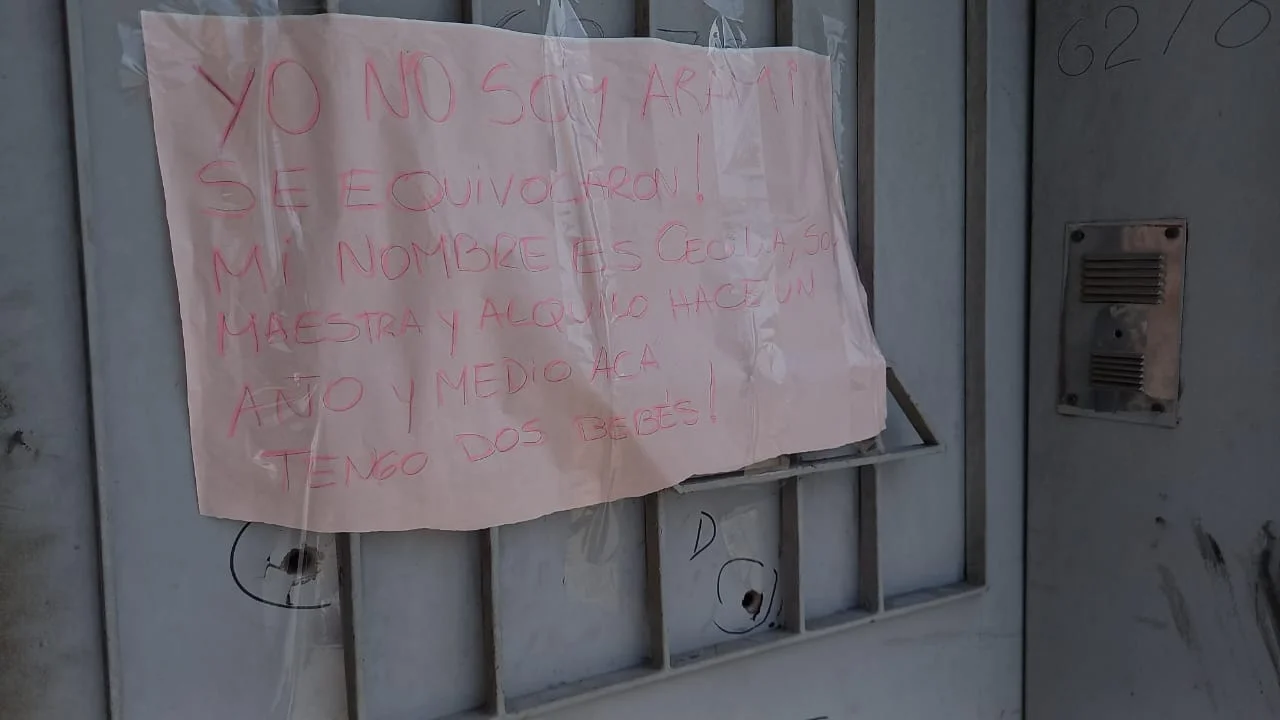 YO NO SOY ARAMI
SE EQUIVOCARON!
MI NOMBRE ES CECILIA, SOY
MAESTRA Y ALQUILO HACE UN
AÑO Y MEDIO ACA
TENGO DOS BEBÉS!
6210
D